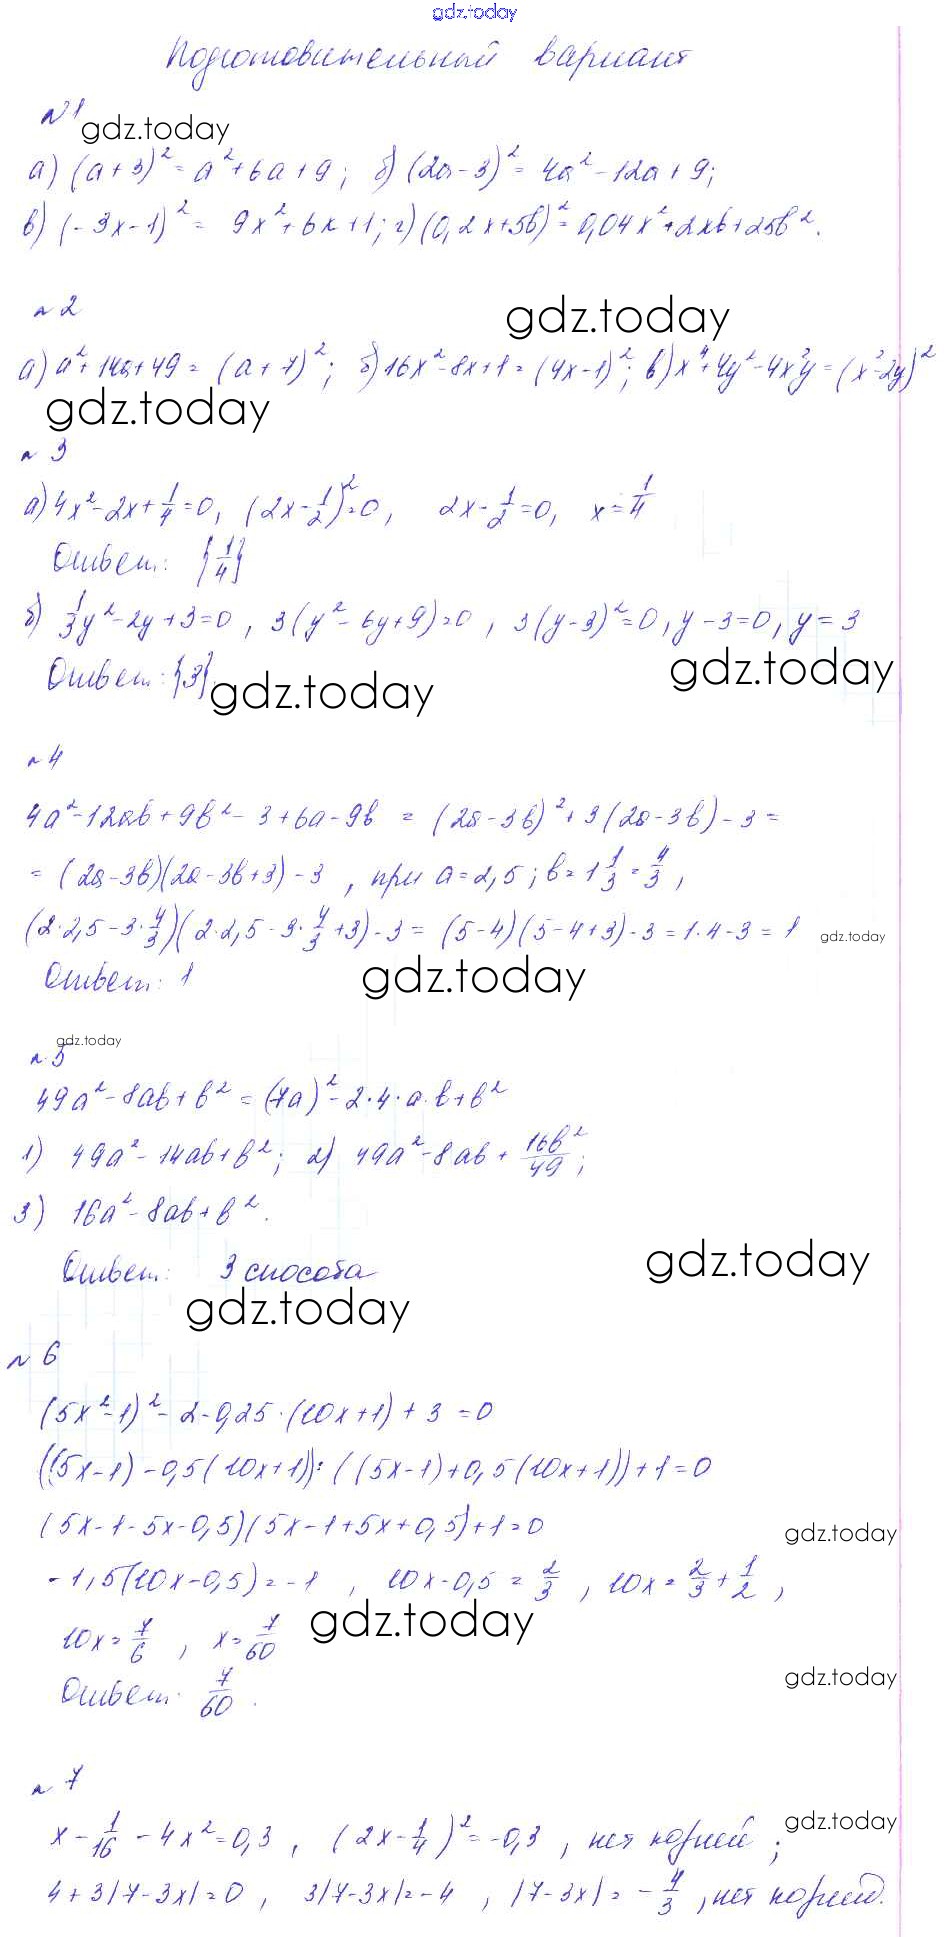 gdz.today
Подготовительный вариант
№1
gdz.today
а) (a+3)² = a²+6a+9; б) (2a-3)² = 4a²-12a+9;
в) (-3x-1)² = 9x²+6x+1; г) (0,2x+5b)² = 0,04x²+2xb+25b².
№2
gdz.today
а) a²+14a+49 = (a+7)²; б) 16x²-8x+1 = (4x-1)²; в) x⁴+4y²-4x²y = (x²-2y)²
gdz.today
№3
а) 4x²-2x+1/4=0, (2x-1/2)²=0, 2x-1/2=0, x=1/4
Ответ: {1/4}
б) 1/3y²-2y+3=0, 3(y²-6y+9)=0, 3(y-3)²=0, y-3=0, y=3
Ответ: {3}.
gdz.today
gdz.today
№4
4a²-12ab+9b²-3+6a-9b = (2a-3b)²+3(2a-3b)-3 =
= (2a-3b)(2a-3b+3)-3, при a=2,5; b=1 1/3=4/3,
(2·2,5-3·4/3)(2·2,5-3·4/3+3)-3 = (5-4)(5-4+3)-3 = 1·4-3 = 1
gdz.today
Ответ: 1
gdz.today
gdz.today
№5
49a²-8ab+b² = (7a)²-2·4·a·b+b²
1) 49a²-14ab+b²; 2) 49a²-8ab+16b²/49;
3) 16a²-8ab+b².
Ответ: 3 способа
gdz.today
gdz.today
№6
(5x²-1)²-2-0,25·(10x+1)+3=0
((5x-1)-0,5(10x+1)):((5x-1)+0,5(10x+1))+1=0
(5x-1-5x-0,5)(5x-1+5x+0,5)+1=0
gdz.today
-1,5(10x-0,5)=-1, 10x-0,5=2/3, 10x=2/3+1/2,
10x=7/6, x=7/60
gdz.today
Ответ: 7/60.
gdz.today
№7
x-1/16-4x²=0,3, (2x-1/4)²=-0,3, нет корней;
gdz.today
4+3|7-3x|=0, 3|7-3x|=-4, |7-3x|=-4/3, нет корней.